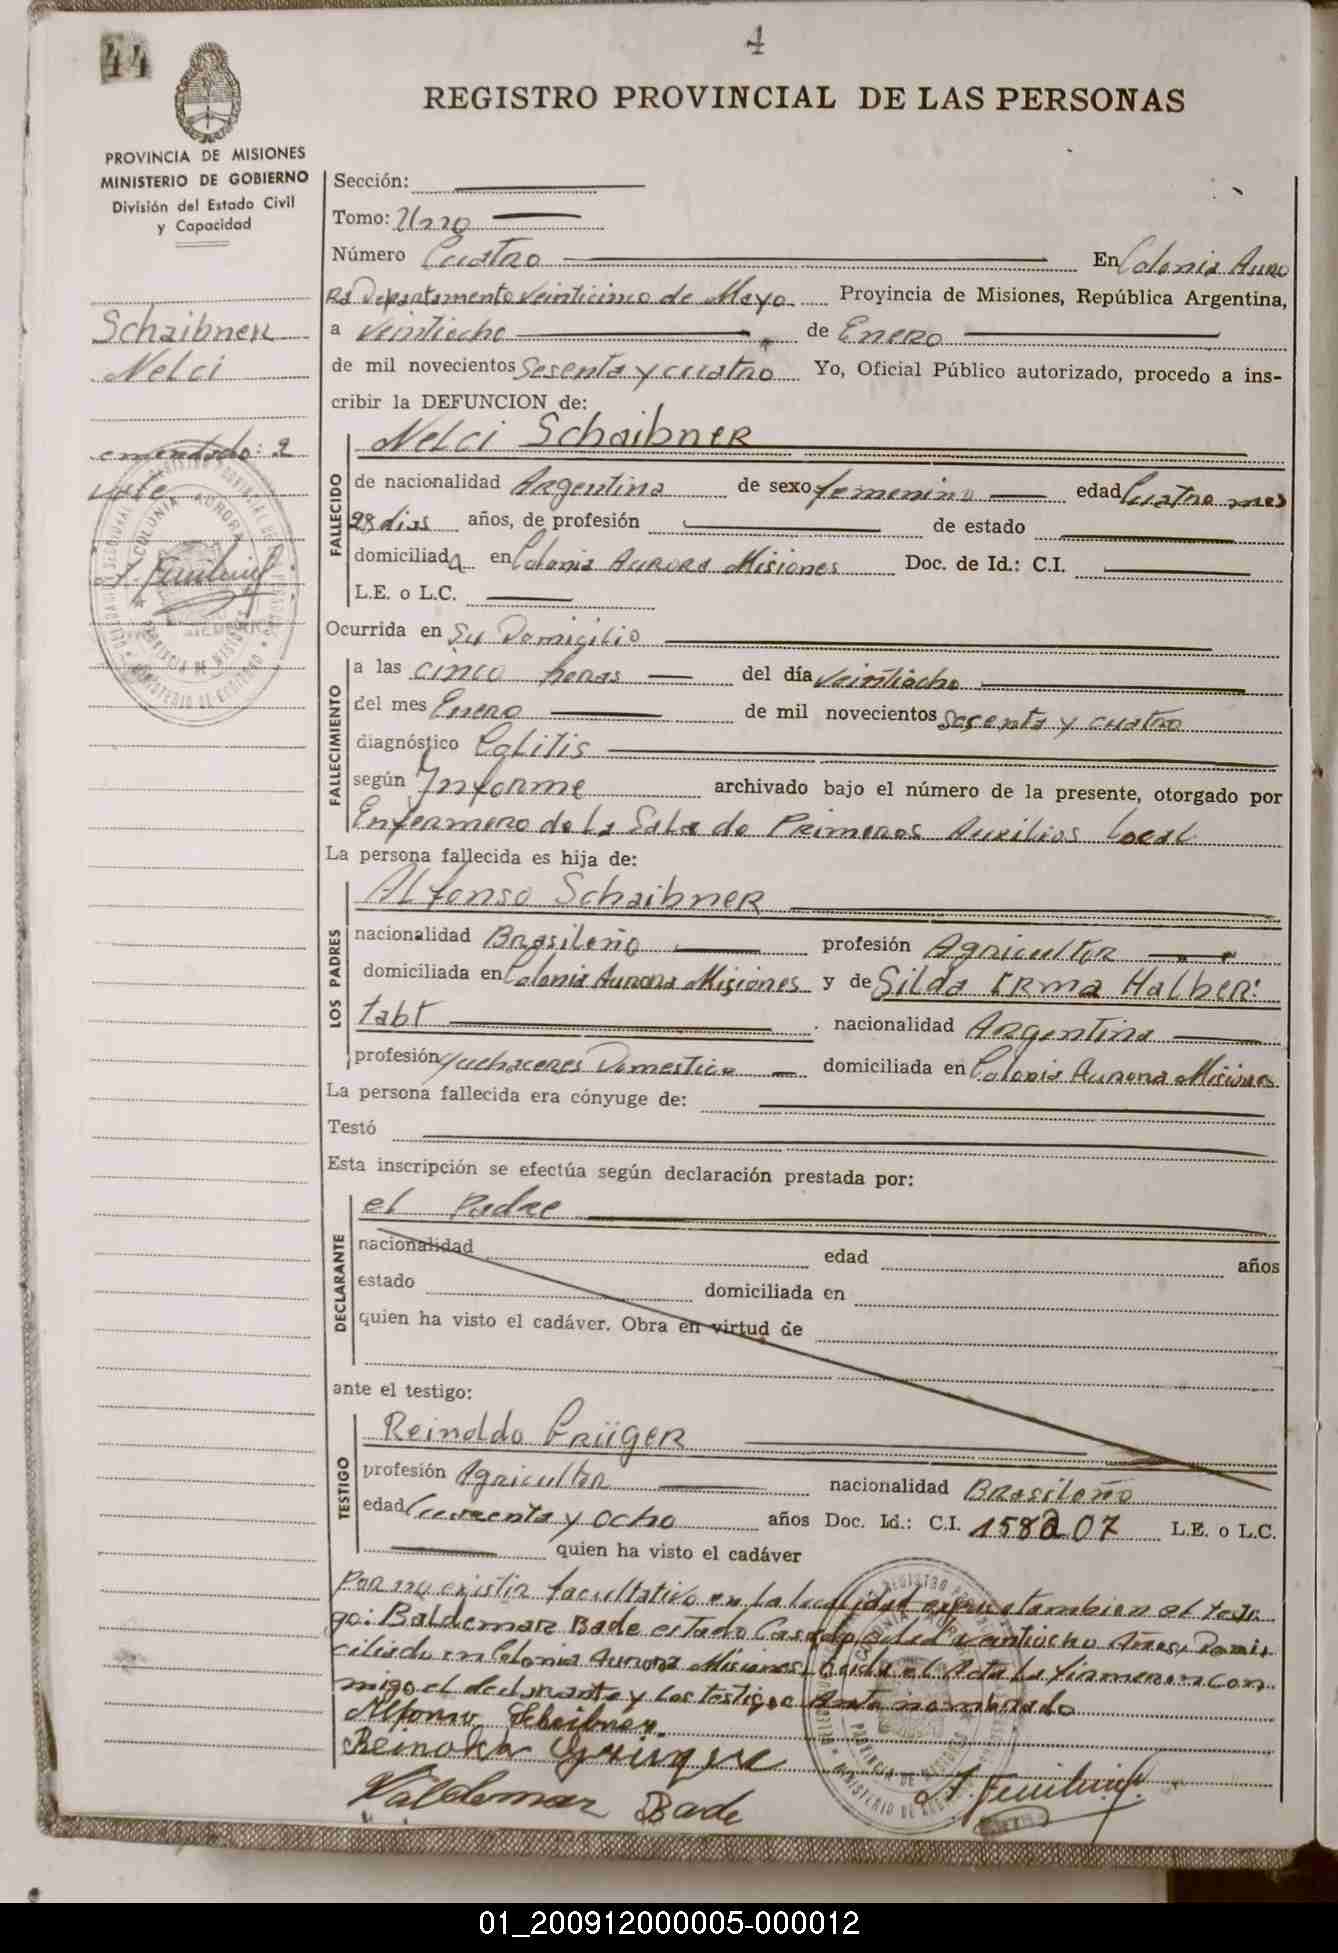 44
4
REGISTRO PROVINCIAL DE LAS PERSONAS
PROVINCIA DE MISIONES
MINISTERIO DE GOBIERNO
División del Estado Civil
y Capacidad
Schaibner
Nelci
emendado: 2
vale.
Sección:
Tomo: Uno
Número Cuatro En Colonia Auro
ra Departamento Veinticinco de Mayo Provincia de Misiones, República Argentina,
a veintiocho de Enero
de mil novecientos Sesenta y cuatro Yo, Oficial Público autorizado, procedo a ins-
cribir la DEFUNCION de:
FALLECIDO
Nelci Schaibner
de nacionalidad Argentina de sexo femenino edad Cuatro mes
28 dias años, de profesión de estado
domiciliada en Colonia Aurora Misiones Doc. de Id.: C.I.
L.E. o L.C.
Ocurrida en Su Domicilio
FALLECIMIENTO
a las cinco horas del día veintiocho
del mes Enero de mil novecientos sesenta y cuatro
diagnóstico Colitis
según Informe archivado bajo el número de la presente, otorgado por
Enfermero de la Sala de Primeros Auxilios Local
La persona fallecida es hija de:
LOS PADRES
Alfonso Schaibner
nacionalidad Brasileño profesión Agricultor
domiciliada en Colonia Aurora Misiones y de Silda Irma Halber:
tabt nacionalidad Argentina
profesión Quehaceres Domestico domiciliada en Colonia Aurora Misiones
La persona fallecida era cónyuge de:
Testó
Esta inscripción se efectúa según declaración prestada por:
DECLARANTE
el Padre
nacionalidad edad años
estado domiciliada en
quien ha visto el cadáver. Obra en virtud de
ante el testigo:
TESTIGO
Reinoldo Crüger
profesión Agricultor nacionalidad Brasileño
edad Cuarenta y ocho años Doc. Id.: C.I. 158207 L.E. o L.C.
quien ha visto el cadáver
Por no existir facultativo en la localidad tambien el testi
go: Baldemar Bade estado Casado, edad veintiocho Años, Domi
ciliado en Colonia Aurora Misiones, Leida el Acta la firmaron con
migo el declarante y los testigos Antes nombrado
Alfonso Scheibner
Reinoldo
Valdemar Bade
01_200912000005-000012